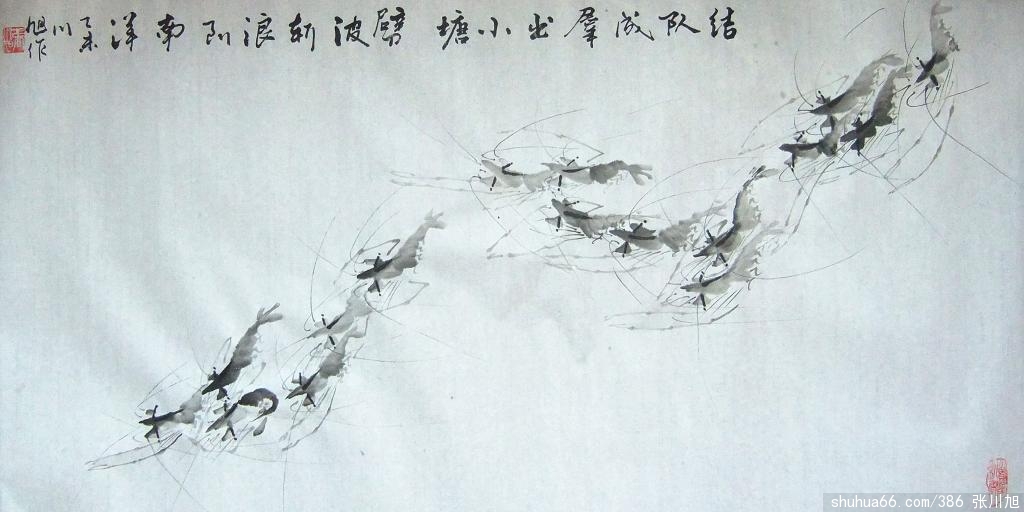 结队成羣出小塘劈波斩浪到南洋
乙未
川旭作
shuhua66.com/386 张川旭